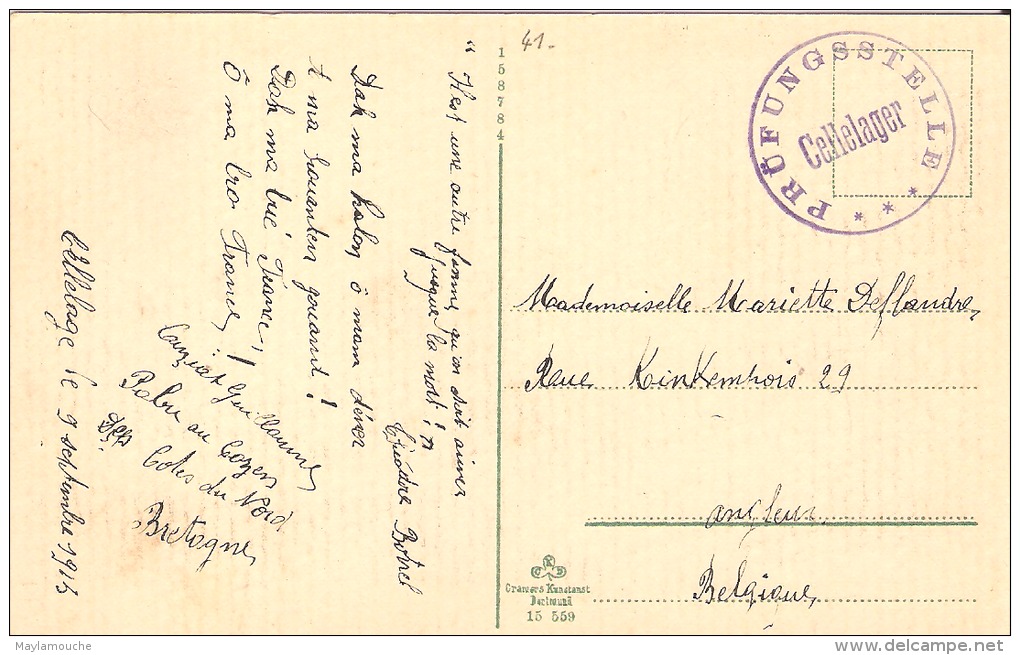 41.-
158784
PRÜFUNGSSTELLE
Cellelager
* * *
" Il est une autre femme qu'on doit aimer
jusque la mort ! "
Théodore Botrel
Dah ma halon ô mam déner
ma rouanten
Dah ma bué France,
Ô ma bro France !
Guillaume
au
Cotes du Nord
Bretagne
Cellelage le 9 septembre 1915
Mademoiselle Mariette Deflandre,
Rue Kinkempois 29
Angleur.
Belgique,
C K D
Cramers Kunstanst
Dortmund
15 559
Maylamouche
www.delcampe.net